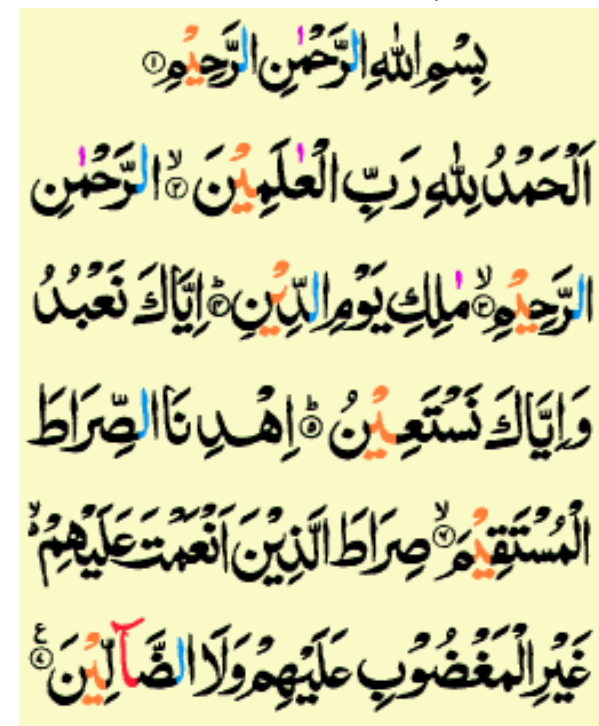 بِسْمِ اللهِ الرَّحْمٰنِ الرَّحِيْمِ ۝١
اَلْحَمْدُ لِلّٰهِ رَبِّ الْعٰلَمِيْنَ ۙ۝٢ الرَّحْمٰنِ
الرَّحِيْمِ ۙ۝٣ مٰلِكِ يَوْمِ الدِّيْنِ ۝٤ؕ اِيَّاكَ نَعْبُدُ
وَاِيَّاكَ نَسْتَعِيْنُ ۝٥ؕ اِهْدِنَا الصِّرَاطَ
الْمُسْتَقِيْمَ ۙ۝٦ صِرَاطَ الَّذِيْنَ اَنْعَمْتَ عَلَيْهِمْ ۙ
غَيْرِ الْمَغْضُوْبِ عَلَيْهِمْ وَلَا الضَّآلِّيْنَ ۝٧ ع